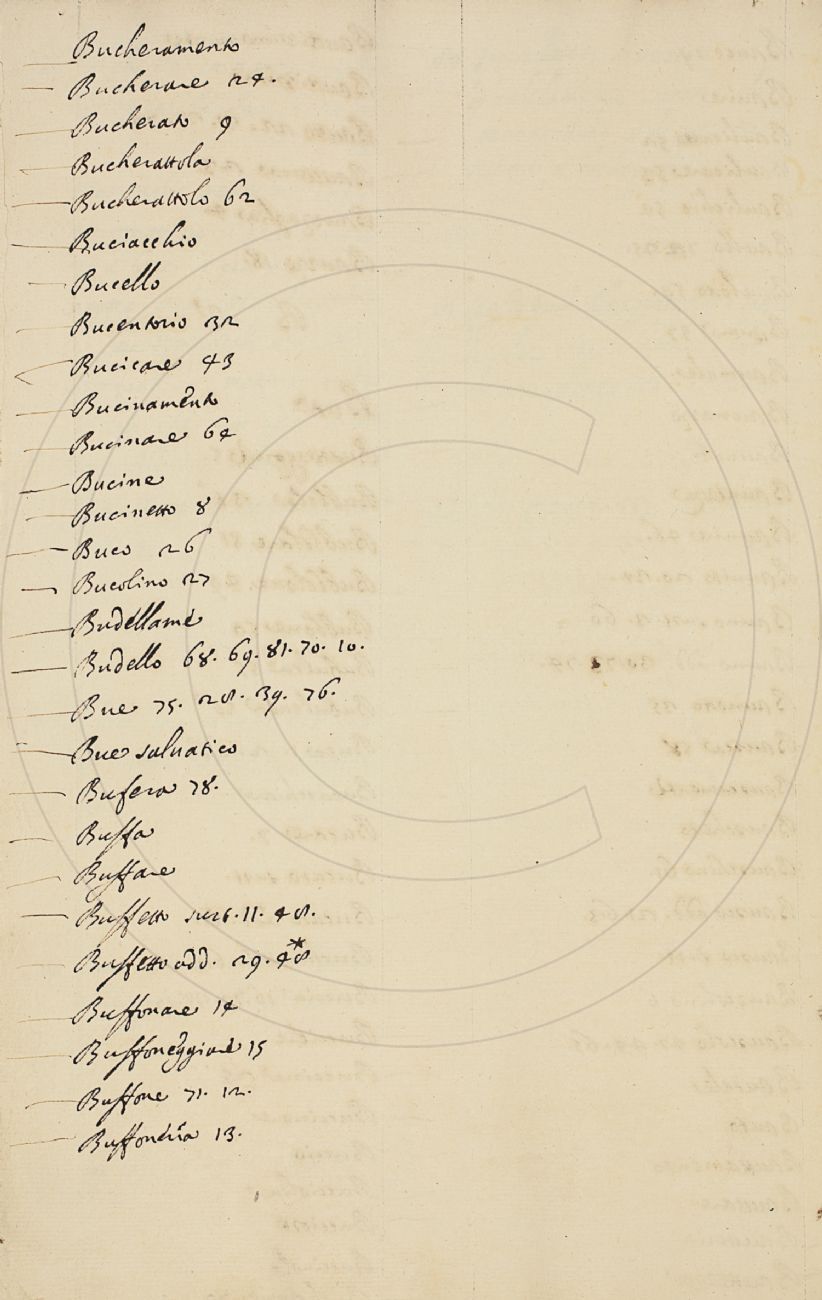 Bucheramento
Bucherare 24.
Bucherato 9
Bucherattola
Bucherattolo 62
Buciacchio
Bucello
Bucentorio 32
Bucicare 43
Bucinamento
Bucinare 64
Bucine
Bucinetto 8
Buco 26
Bucolino 27
Budellame
Budello 68. 69. 81. 70. 10.
Bue 75. 28. 39. 76.
Bue salvatico
Bufera 78.
Buffa
Buffare
Buffetto sust. 11. 48.
Buffetto add. 29. 48*
Buffonare 14
Buffoneggiare 15
Buffone 71. 12.
Buffoneria 13.